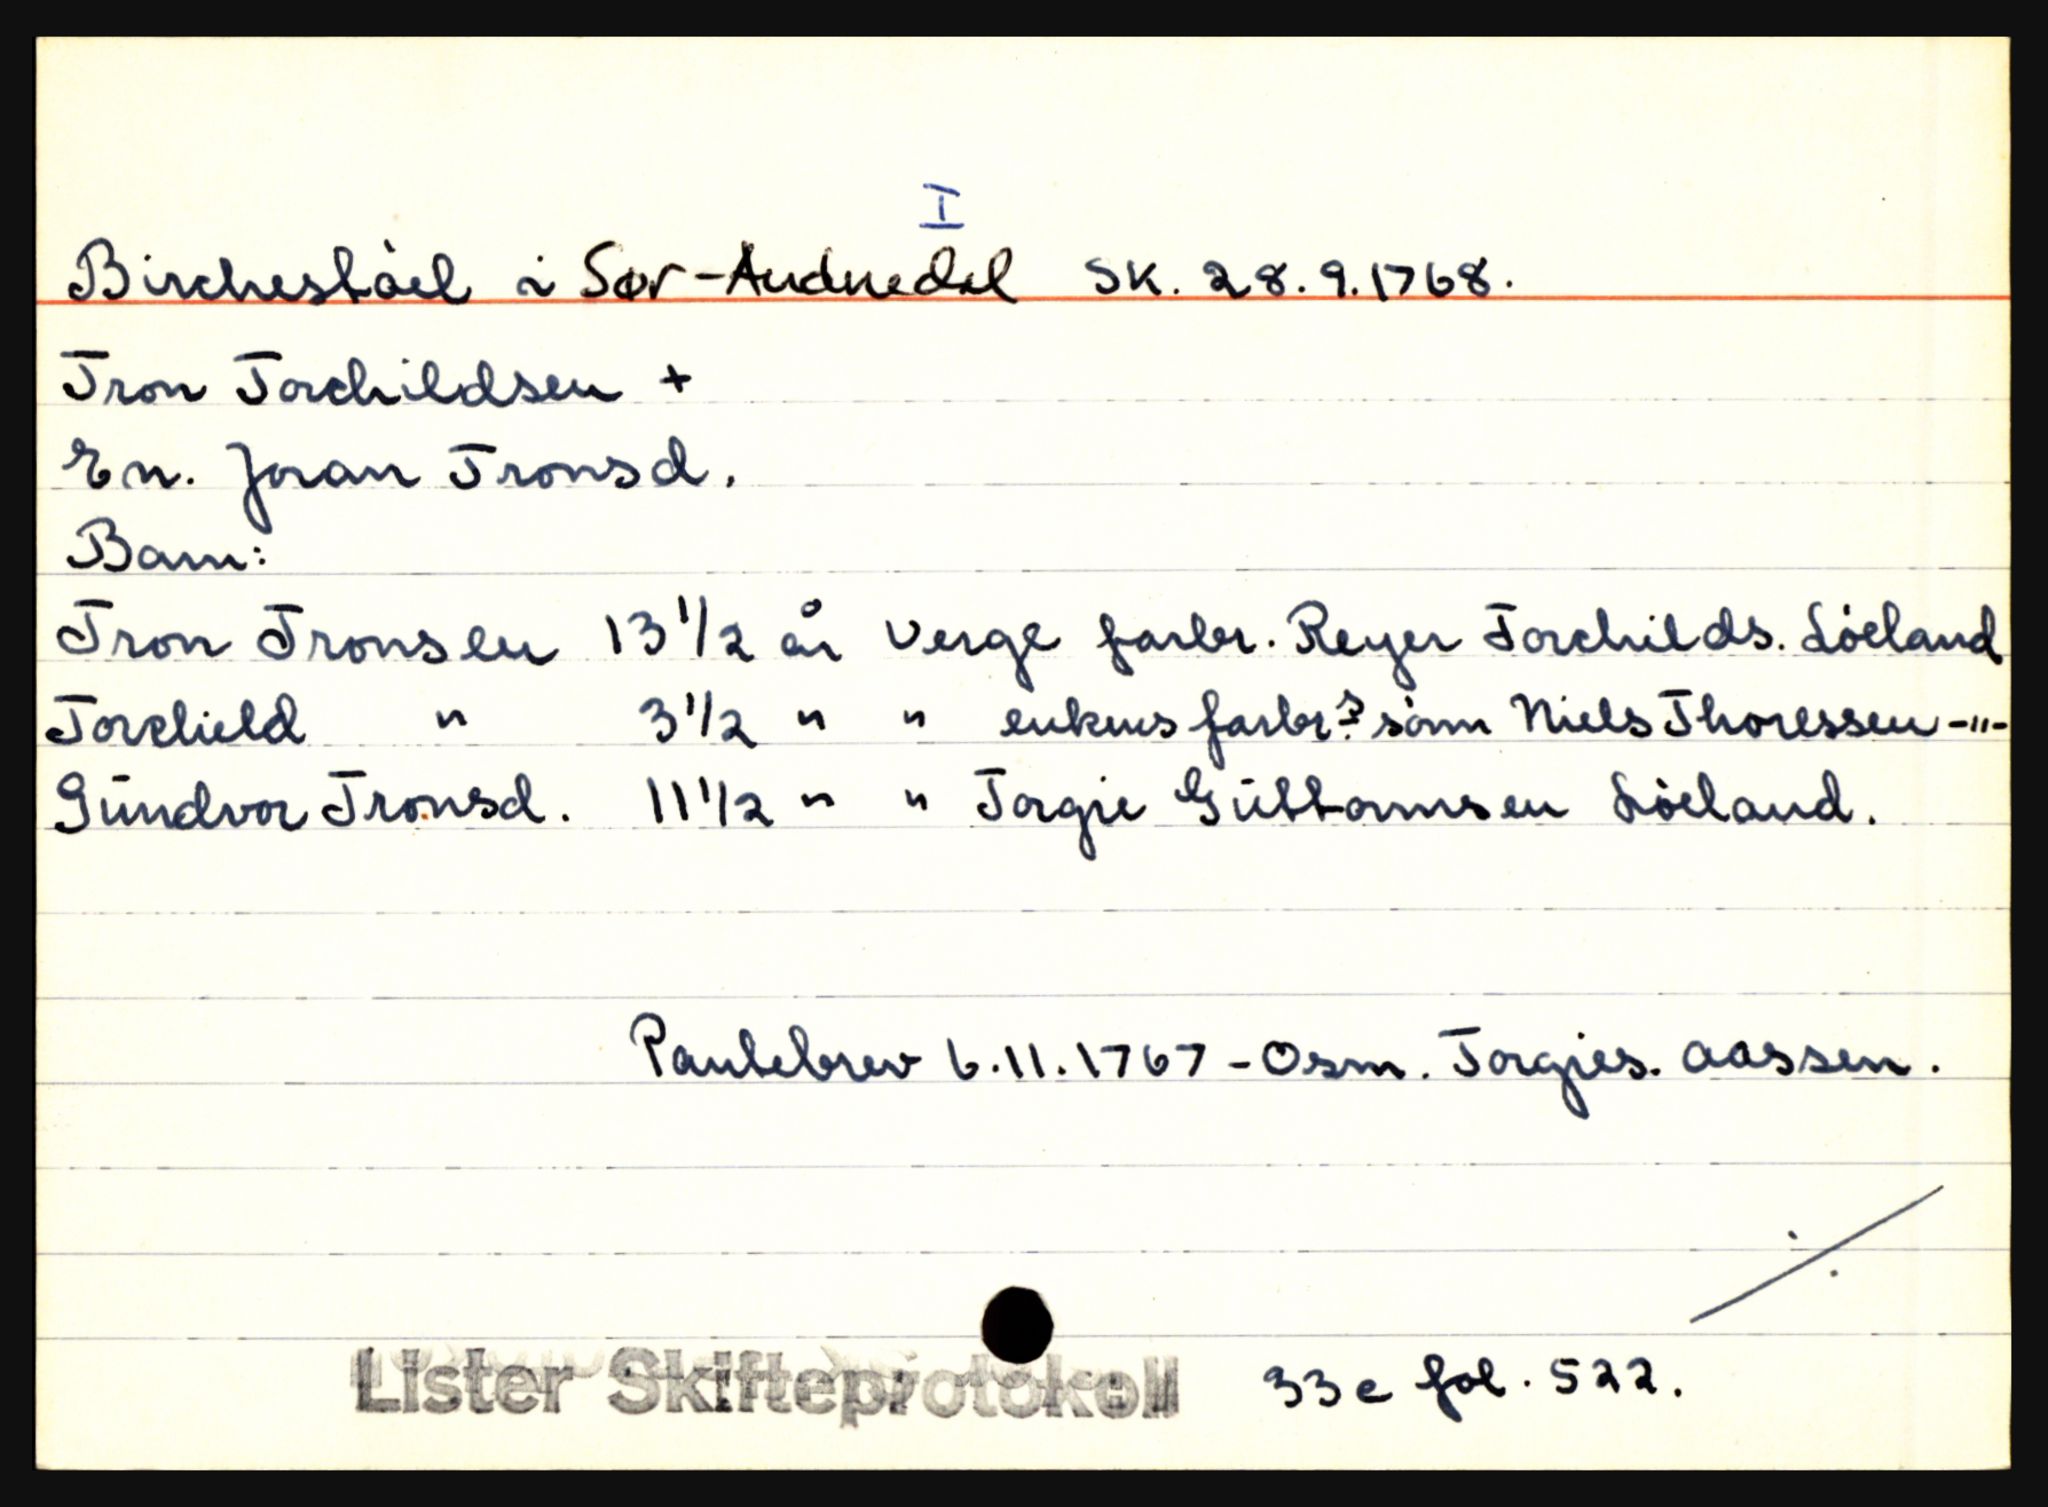 I
Birchestøel i Sør-Audnedal SK. 28.9.1768.
Tron Torchildsen +
En. Joran Tronsd.
Barn:
Tron Tronsen 13 1/2 år verge farbr. Reyer Torchilds. Löeland
Torchield " 3 1/2 " " enkens farbr.s sönn Niels Thoressen -"-
Gündvor Tronsd. 11 1/2 " " Torgie Güttormsen Löeland.
Pantebrev 6.11.1767 - Osm. Torgies. Aassen.
Lister Skifteprotokoll 33 c fol. 522.